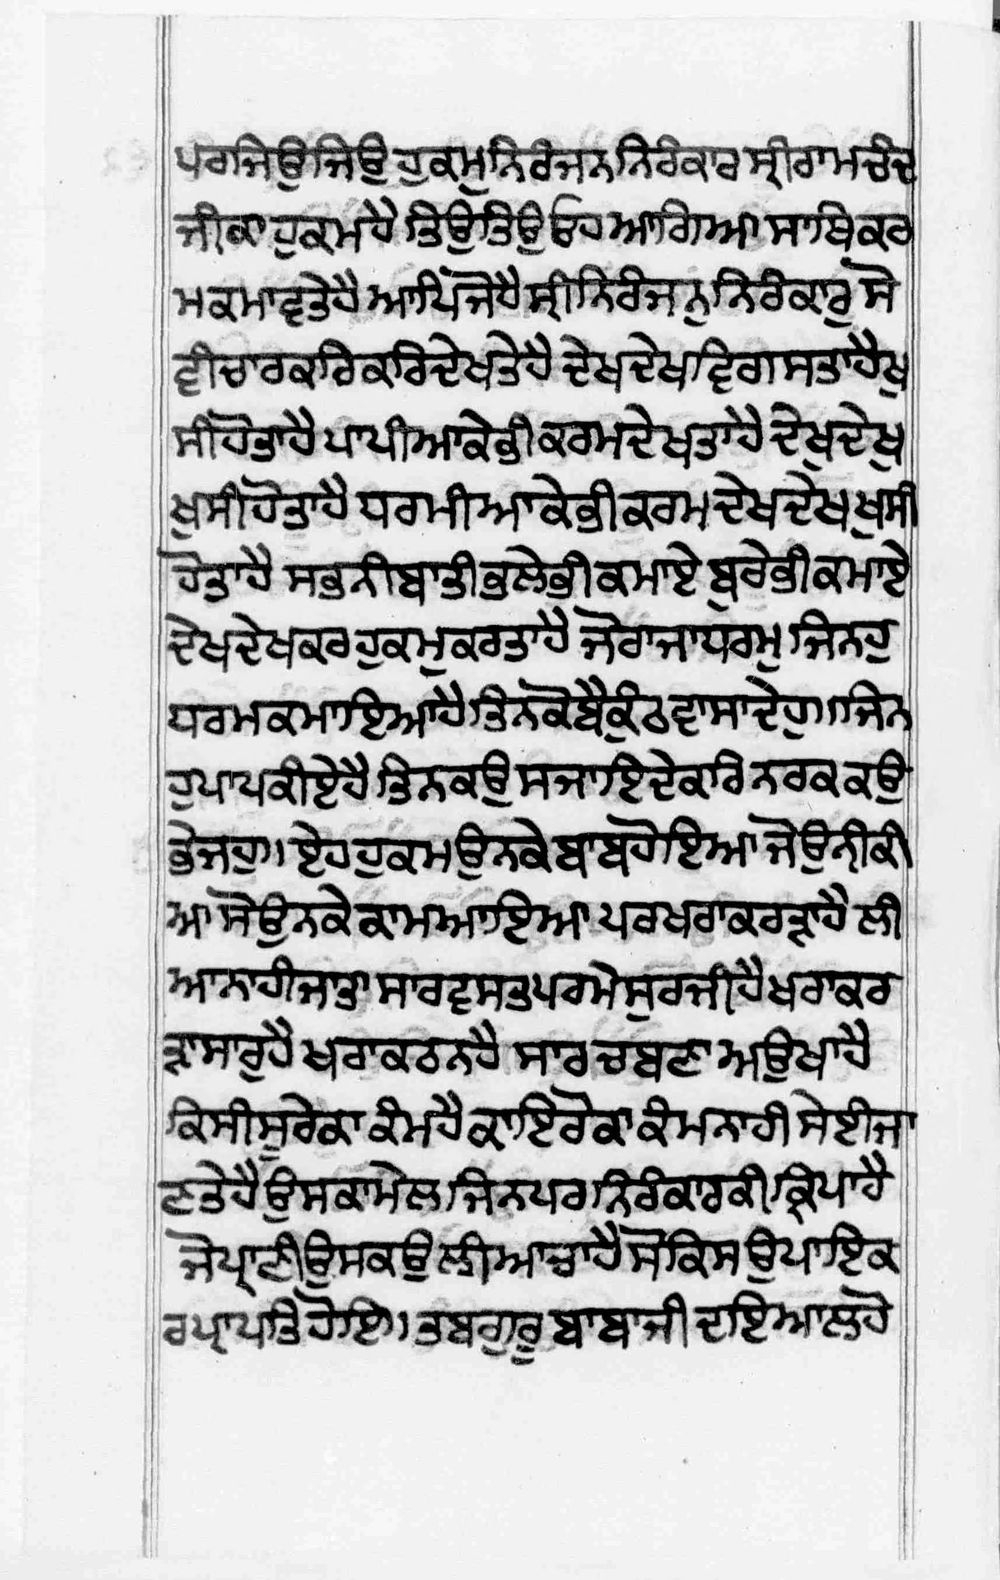 ਪਰਜਿਉਜਿਉ ਹੁਕਮੁ ਨਿਰੰਜਨ ਨਿਰੰਕਾਰ ਸ੍ਰੀਰਾਮਚੰਦ
ਜੀਕਾ ਹੁਕਮ ਹੈ ਤਿਉਤਿਉ ਓਹ ਆਗਿਆ ਸਾਥਿ ਕਰ
ਮ ਕਮਾਵਤੇ ਹੈ ਆਪਿ ਜੋ ਹੈ ਸ੍ਰੀ ਨਿਰੰਜਨੁ ਨਿਰੰਕਾਰੁ ਸੋ
ਵੀਚਾਰ ਕਰਿ ਕਰਿ ਦੇਖਤੇ ਹੈ ਦੇਖ ਦੇਖ ਵਿਗਸਤਾ ਹੈ ਖੁ
ਸੀ ਹੋਤਾ ਹੈ ਪਾਪੀਆ ਕੇ ਭੀ ਕਰਮ ਦੇਖਤਾ ਹੈ ਦੇਖੁ ਦੇਖੁ
ਖੁਸੀ ਹੋਤਾ ਹੈ ਧਰਮੀਆ ਕੇ ਭੀ ਕਰਮ ਦੇਖ ਦੇਖ ਖੁਸੀ
ਹੋਤਾ ਹੈ ਸਭਨੀ ਬਾਤੀ ਭਲੇ ਭੀ ਕਮਾਏ ਬੁਰੇ ਭੀ ਕਮਾਏ
ਦੇਖ ਦੇਖ ਕਰ ਹੁਕਮੁ ਕਰਤਾ ਹੈ ਜੋ ਰਾਜਾ ਧਰਮੁ ਜਿਨਹੁ
ਧਰਮ ਕਮਾਇਆ ਹੈ ਤਿਨ ਕੋ ਬੈਕੁੰਠ ਵਾਸਾ ਦੇਹੁ॥ ਜਿਨ
ਹੁ ਪਾਪ ਕੀਏ ਹੈ ਤਿਨ ਕਉ ਸਜਾਇ ਦੇ ਕਰਿ ਨਰਕ ਕਉ
ਭੇਜਹੁ॥ ਏਹ ਹੁਕਮ ਉਨਕੇ ਬਾਬ ਹੋਇਆ ਜੋ ਉਨੀ ਕੀ
ਆ ਸੋ ਉਨਕੇ ਕਾਮ ਆਇਆ ਪਰ ਖਰਾ ਕਰੜਾ ਹੈ ਲੀ
ਆ ਨਾਹੀ ਜਾਤਾ ਸਾਰ ਵਸਤ ਪਰਮੇਸੁਰ ਜੀ ਹੈ ਖਰਾ ਕਰ
ੜਾ ਸਾਰੁ ਹੈ ਖਰਾ ਕਠਨ ਹੈ ਸਾਰ ਚਬਣਾ ਅਉਖਾ ਹੈ
ਕਿਸੀ ਸੂਰੇ ਕਾ ਕੰਮ ਹੈ ਕਾਇਰੋ ਕਾ ਕੰਮ ਨਾਹੀ ਸੇਈ ਜਾ
ਣਤੇ ਹੈ ਉਸਕਾ ਮੇਲ ਜਿਨ ਪਰ ਨਿਰੰਕਾਰ ਕੀ ਕ੍ਰਿਪਾ ਹੈ
ਜੋ ਪ੍ਰਾਣੀ ਉਸ ਕਉ ਲੀਆ ਚਾਹੈ ਸੋ ਕਿਸ ਉਪਾਇ ਕ
ਰ ਪ੍ਰਾਪਤਿ ਹੋਇ॥ ਤਬ ਗੁਰੂ ਬਾਬਾ ਜੀ ਦਇਆਲ ਹੋ